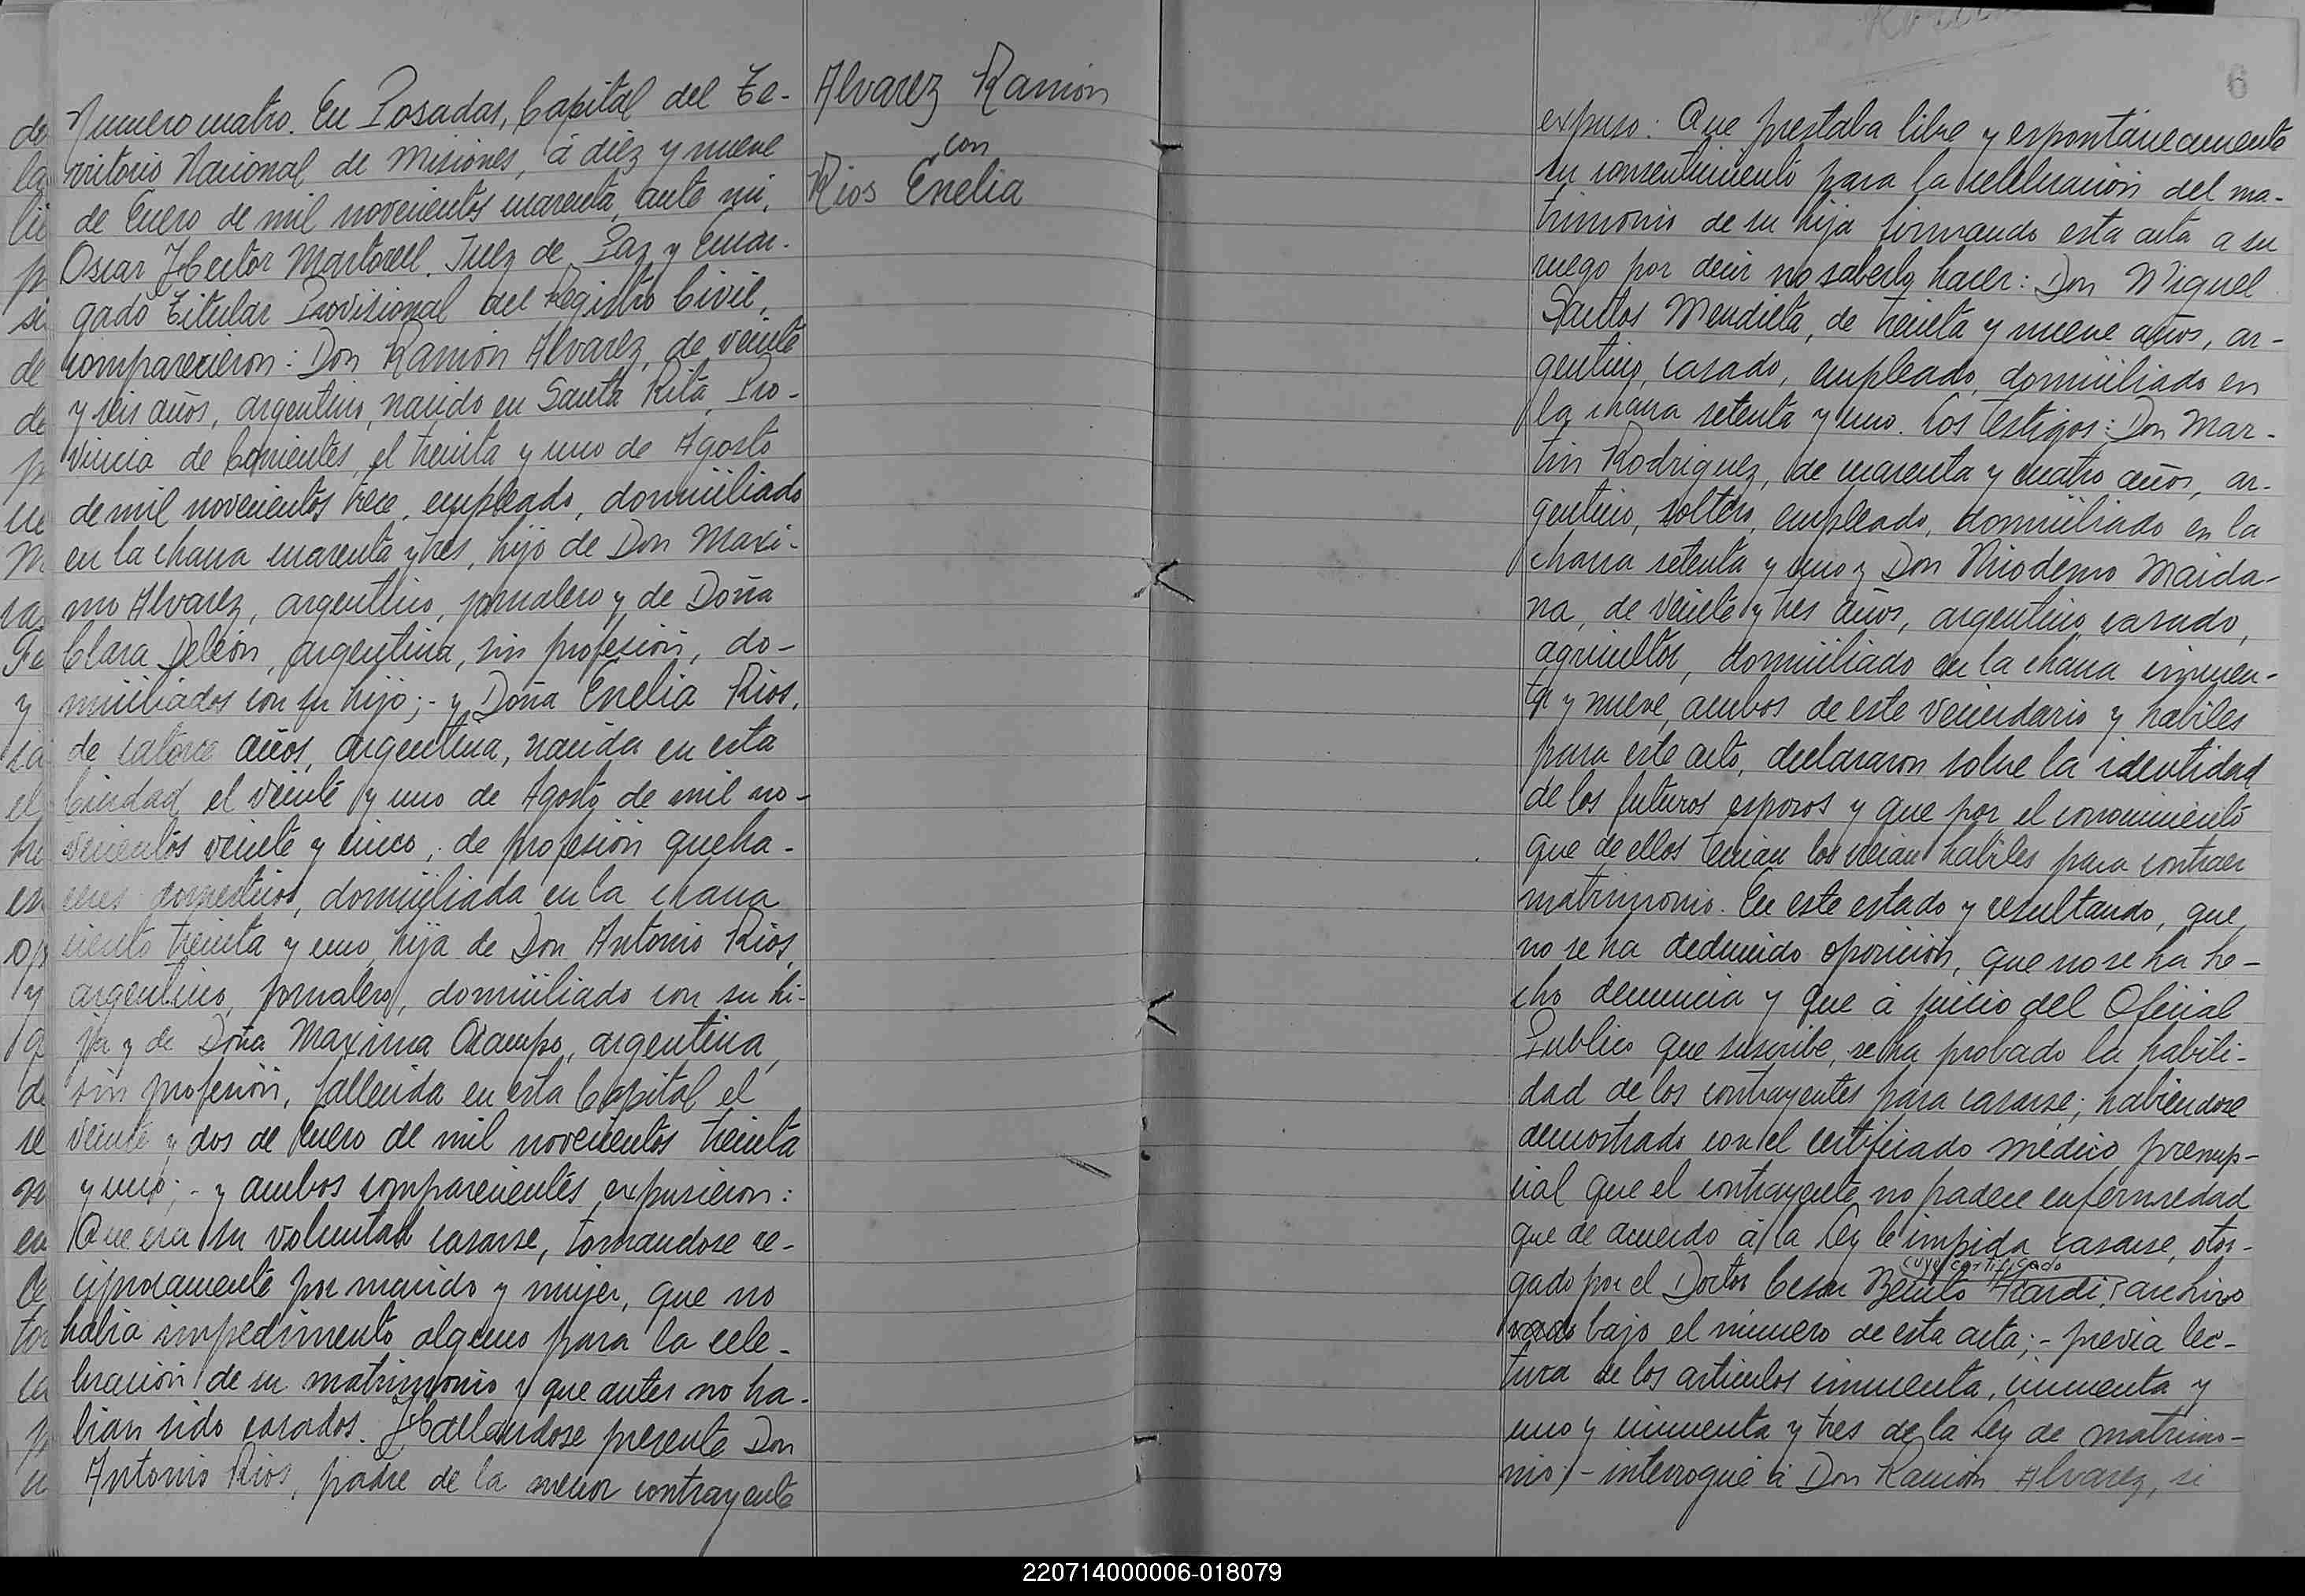 Numero cuatro. En Posadas, Capital del Te-
rritorio Nacional de Misiones, á diez y nueve
de Enero de mil novecientos cuarenta, ante mi,
Oscar Hector Martorell. Juez de Paz y Encar-
gado Titular Provisional del Registro Civil,
comparecieron: Don Ramón Alvarez, de veinte
y seis años, argentino, nacido en Santa Rita, Pro-
vincia de Corrientes, el treinta y uno de Agosto
de mil novecientos trece, empleado, domiciliado
en la chacra cuarenta y tres, hijo de Don Maxi-
mo Alvarez, argentino, jornalero y de Doña
Clara Deleón, argentina, sin profesión, do-
miciliados con su hijo;- y Doña Enelia Rios,
de catorce años, argentina, nacida en esta
Ciudad, el veinte y uno de Agosto de mil no-
vecientos veinte y cinco, de profesión queha-
ceres domesticos, domiciliada en la chacra
ciento treinta y uno, hija de Don Antonio Rios,
argentino, jornalero, domiciliado con su hi-
ja y de Doña Maxima Ocampo, argentina,
sin profesión, fallecida en esta Capital el
veinte y dos de Enero de mil novecientos treinta
y uno;- y ambos comparecientes expusieron:
Que era su voluntad casarse, tomandose re-
ciprocamente por marido y mujer, que no
habia impedimento alguno para la cele-
bración de su matrimonio y que antes no ha-
bian sido casados. Hallandose presente Don
Antonio Rios, padre de la menor contrayente
Alvarez Ramón
con
Rios Enelia
6
expuso: Que prestaba libre y espontáneamente
su consentimiento para la celebración del ma-
trimonio de su hija firmando esta acta a su
ruego por decir no saberlo hacer: Don Miguel
Santos Mendieta, de treinta y nueve años, ar-
gentino, casado, empleado, domiciliado en
la chacra setenta y uno. Los testigos: Don Mar-
tin Rodriguez, de cuarenta y cuatro años, ar-
gentino, soltero, empleado, domiciliado en la
chacra setenta y uno y Don Niodemo Maida-
na, de veinte y tres años, argentino, casado,
agricultor, domiciliado en la chacra cincuen-
ta y nueve, ambos de este vecindario y habiles
para este acto, declararon sobre la identidad
de los futuros esposos y que por el conocimiento
que de ellos tenian los creian habiles para contraer
matrimonio. En este estado y resultando, que
no se ha deducido oposición, que no se ha he-
cho denuncia y que á juicio del Oficial
Publico que suscribe, se ha probado la habili-
dad de los contrayentes para casarse; habiendose
demostrado con el certificado médico prenup-
cial que el contrayente no padece enfermedad
que de acuerdo á la Ley le impida casarse, otor-
cuyo certificado
gado por el Doctor Cesar Benito archivo
bajo el número de esta acta;- previa lec-
tura de los articulos cincuenta, cincuenta y
uno y cincuenta y tres de la Ley de matrimo-
nio;- interrogué á Don Ramón Alvarez, si
220714000006-018079